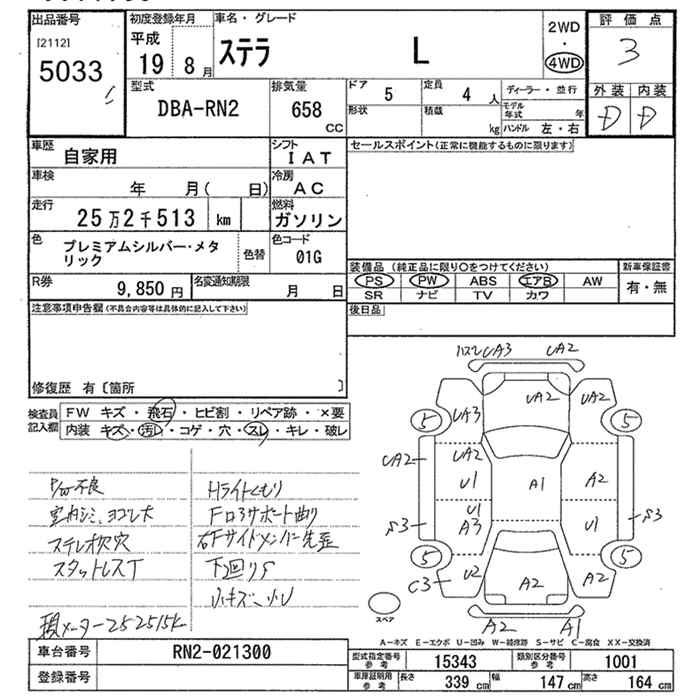 出品番号
[2112]
5033
初度登録年月
平成
19 8月
車名・グレード
ステラ L
2WD
・
4WD
評価点
3
外装 内装
D D
型式
DBA-RN2
排気量
658
CC
ドア 5
定員 4 人
形状
積載 kg
ディーラー・並行
モデル年式 年
ハンドル 左・右
車歴
自家用
シフト
I A T
車検
年 月( 日)
冷房
A C
走行
25万2千513 km
燃料
ガソリン
色
プレミアムシルバー・メタ
リック
色替
色コード
01G
R券
9,850 円
名変通知期限
月 日
セールスポイント(正常に機能するものに限ります)
装備品 (純正品に限り○をつけてください)
PS PW ABS エアB AW
SR ナビ TV カワ
新車保証書
有・無
後日品
注意事項申告欄(不具合内容等は具体的に記入して下さい)
修復歴 有〔箇所 〕
検査員
記入欄
FW キズ・飛石・ヒビ割・リペア跡・×要
内装 キズ・汚レ・コゲ・穴・スレ・キレ・破レ
P/W不良
室内シミ、ヨゴレ大
ステレオ欠穴
スタットレスT
積メーター252515K
Hライトくもり
Fロアサポート曲り
右Fサイドメンバー先歪
下回りS
小キズ、小U
バスレUA3 UA2
5 UA3 UA2 UA2 5
UA2 UA2
U1 A1 A2
S3 U1 A3 U1 S3
5 5
C3 U2 A2 A2
A2 A1
スペア
A−キズ E−エクボ U−凹み W−補修跡 S−サビ C−腐食 XX−交換済
車台番号
RN2-021300
登録番号
型式指定番号
参考
15343
類別区分番号
参考
1001
車庫証明用
参考
長さ 339 cm
幅 147 cm
高さ 164 cm